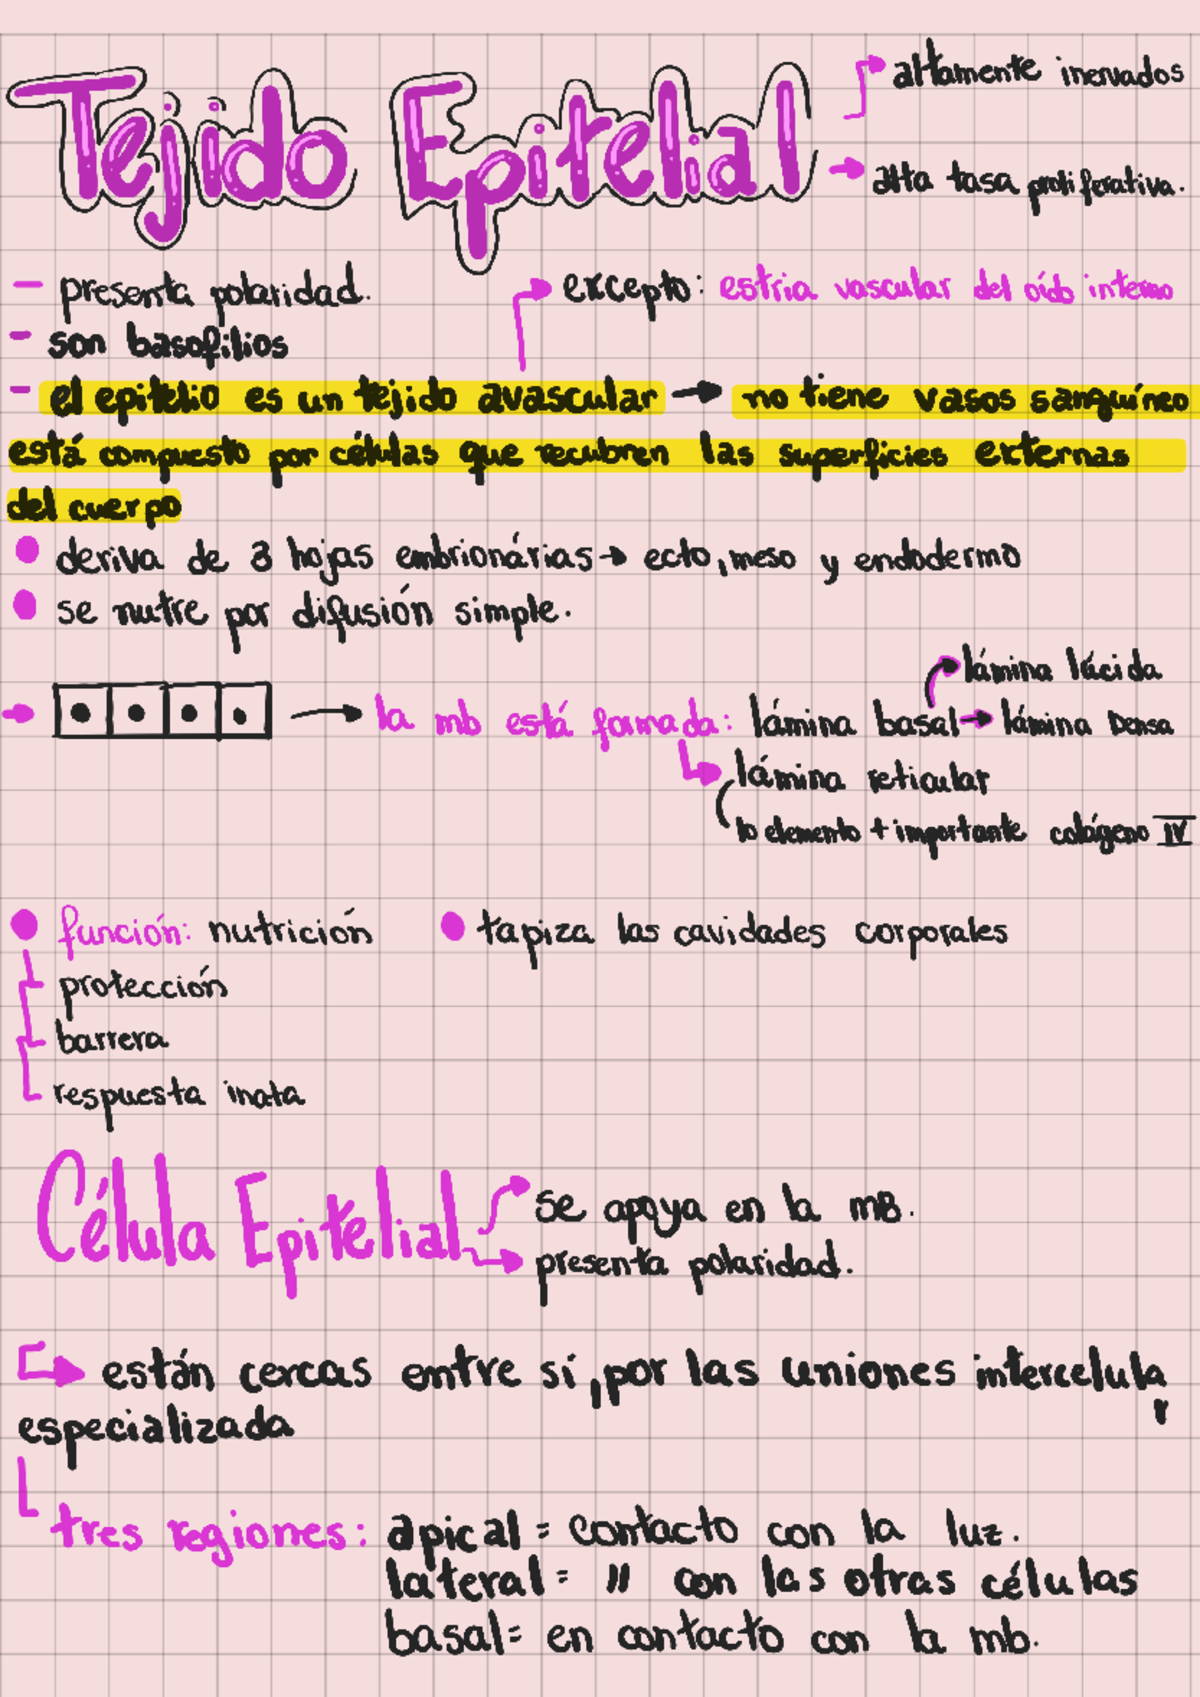 Tejido Epitelial
altamente inervados
alta tasa proliferativa.
- presenta polaridad.
excepto: estria vascular del oído interno
- son basofilios
- el epitelio es un tejido avascular → no tiene vasos sanguíneo
está compuesto por células que recubren las superficies externas
del cuerpo
deriva de 3 hojas embrionárias → ecto, meso y endodermo
se nutre por difusión simple.
lámina lúcida
la mb está formada: lámina basal → lámina Densa
lámina reticular
lo elemento + importante colágeno IV
función: nutrición
tapiza las cavidades corporales
protección
barrera
respuesta inata
Célula Epitelial
se apoya en la mB.
presenta polaridad.
están cercas entre sí, por las uniones intercelular
especializada
tres regiones: apical = contacto con la luz.
lateral = " con las otras células
basal = en contacto con la mb.